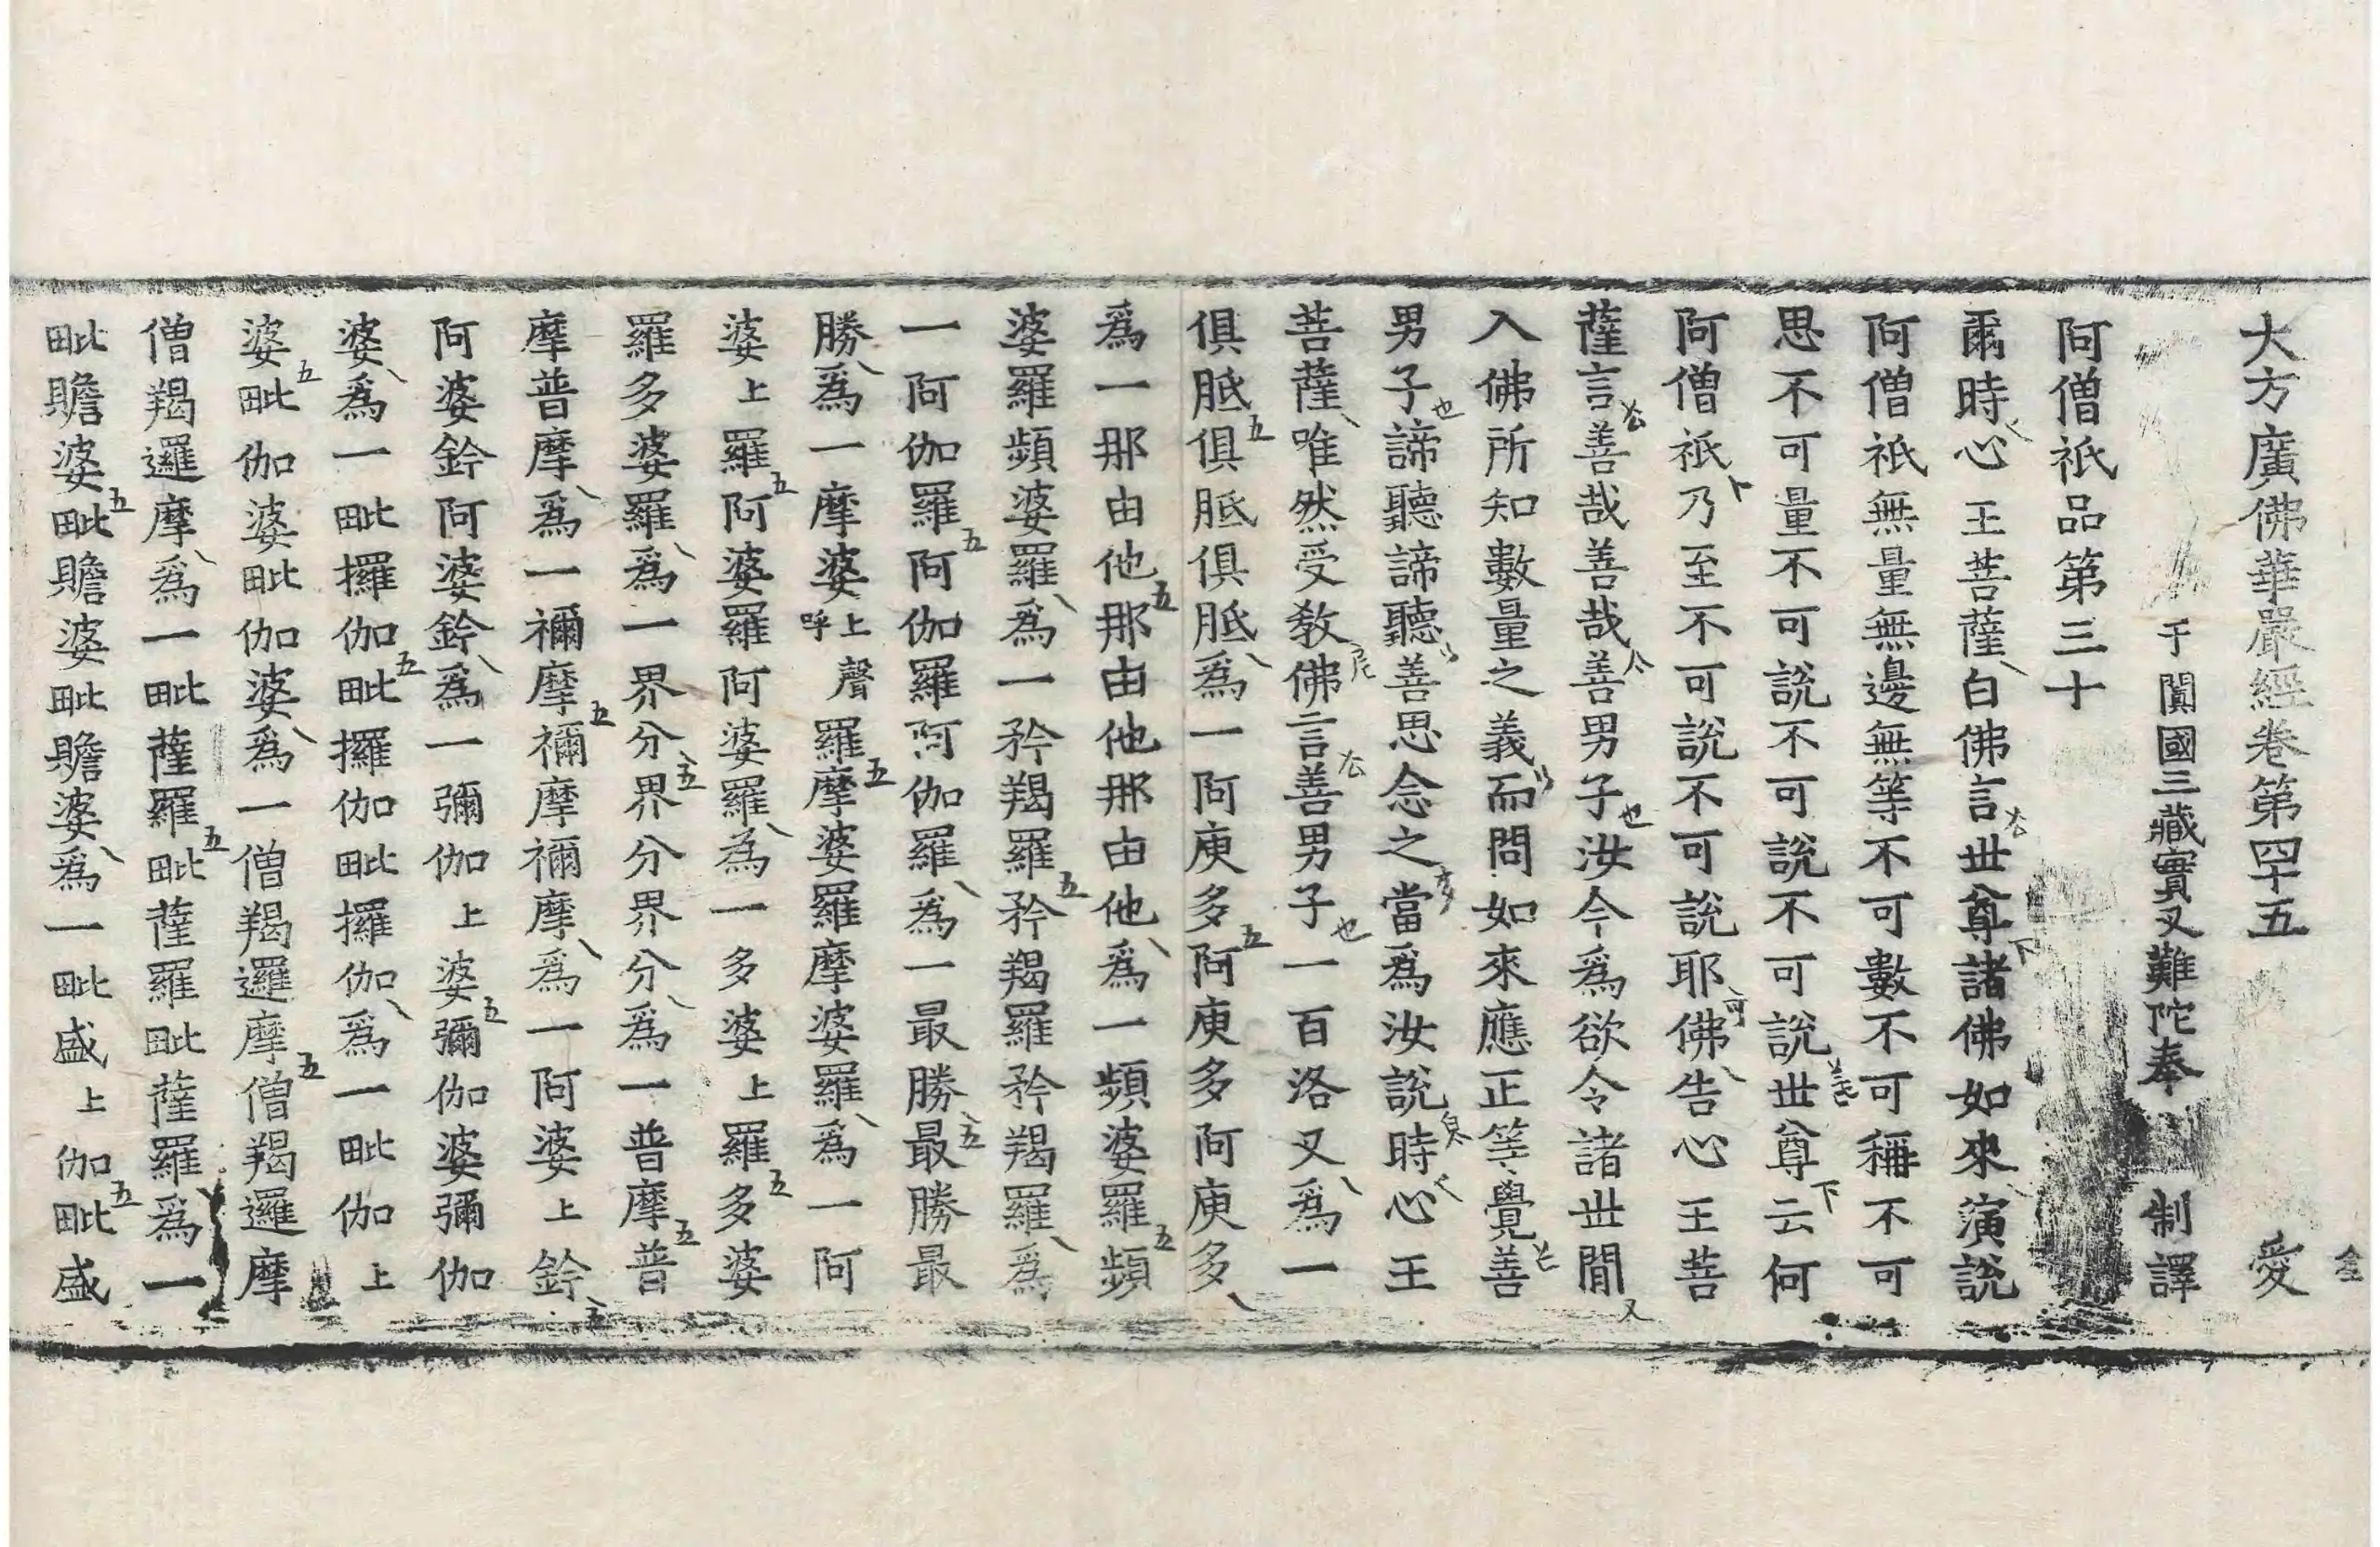 大方廣佛華嚴經卷第四十五 愛
于闐國三藏實叉難陀奉 制譯
阿僧祇品第三十
爾時心王菩薩白佛言世尊諸佛如來演說
阿僧祇無量無邊無等不可數不可稱不可
思不可量不可說不可說不可說世尊云何
阿僧祇乃至不可說不可說耶佛告心王菩
薩言善哉善哉善男子汝今爲欲令諸世閒
入佛所知數量之義而問如來應正等覺善
男子諦聽諦聽善思念之當爲汝說時心王
菩薩唯然受教佛言善男子一百洛叉爲一
俱胝俱胝俱胝爲一阿庾多阿庾多阿庾多
爲一那由他那由他那由他爲一頻婆羅頻
婆羅頻婆羅爲一矜羯羅矜羯羅矜羯羅爲
一阿伽羅阿伽羅阿伽羅爲一最勝最勝最
勝爲一摩婆上聲呼羅摩婆羅摩婆羅爲一阿
婆上羅阿婆羅阿婆羅為一多婆上羅多婆
羅多婆羅爲一界分界分界分爲一普摩普
摩普摩爲一禰摩禰摩禰摩爲一阿婆上鈐
阿婆鈐阿婆鈐爲一彌伽上婆彌伽婆彌伽
婆爲一毗攞伽毗攞伽毗攞伽爲一毗伽上
婆毗伽婆毗伽婆爲一僧羯邏摩僧羯邏摩
僧羯邏摩爲一毗薩羅毗薩羅毗薩羅爲一
毗贍婆毗贍婆毗贍婆爲一毗盛上伽毗盛